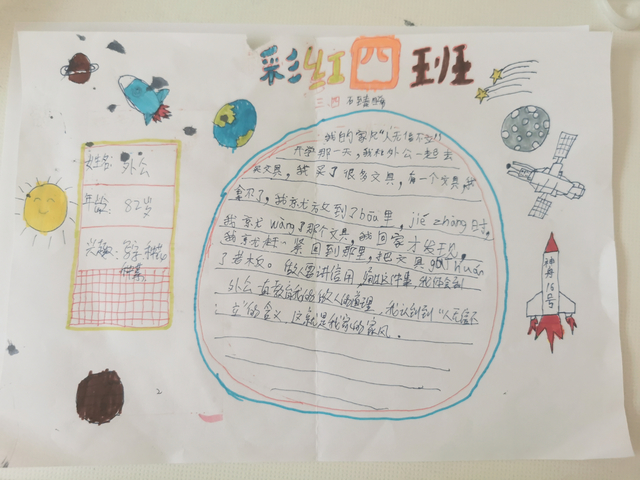 彩虹四班
三.四
姓名: 外公
年龄: 82岁
兴趣:
我的家风"人无信不立"
开学那一天,我和外公一起去
买文具,我买了很多文具,有一个文具,我
拿不了,我就放到了bāo里,jié zhàng时,
我就wàng了那个文具,我回家才发现,
我就赶紧回到那里,把文具gāi huán
了老板。做人要讲信用,
外公 做人的道理,我认识到"人无信不
立"的含义,这就是我家的家风。
神舟16号